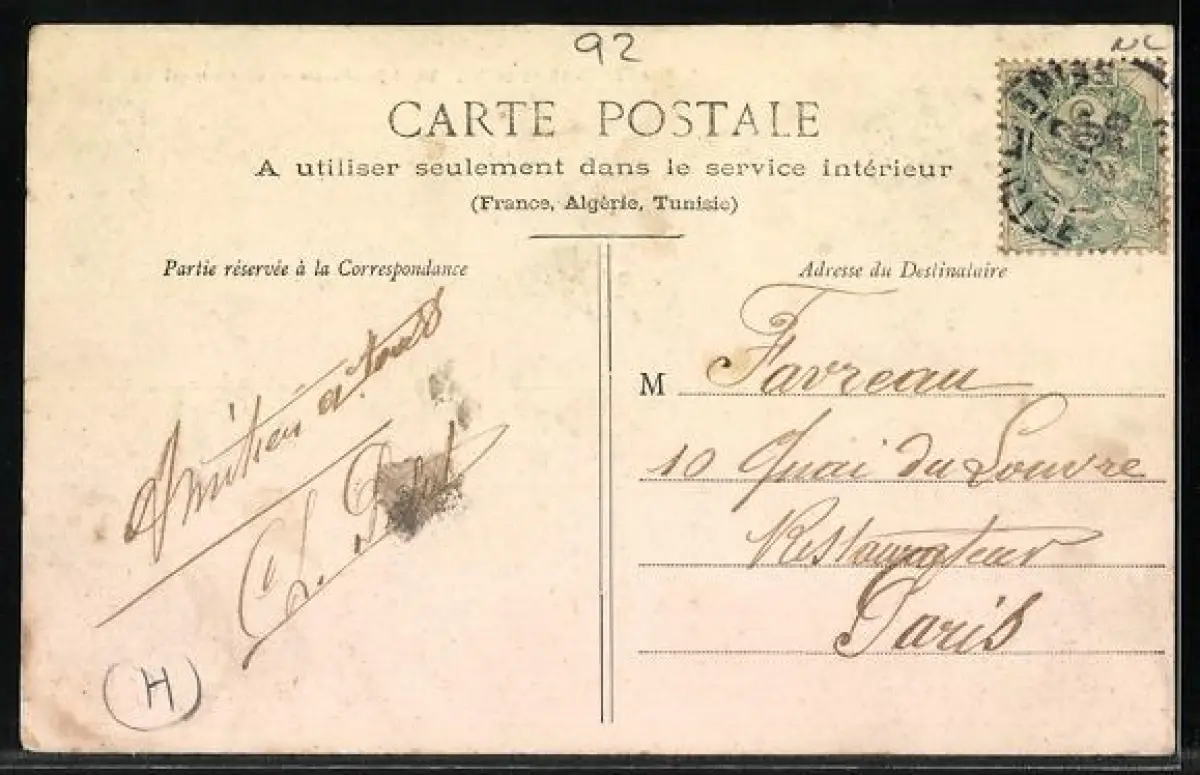 92
CARTE POSTALE
A utiliser seulement dans le service intérieur
(France, Algérie, Tunisie)
Partie réservée à la Correspondance
Adresse du Destinataire
Amitiés a tous
Ch.
M Favreau
10 Quai du Louvre
Restaurateur
Paris
H